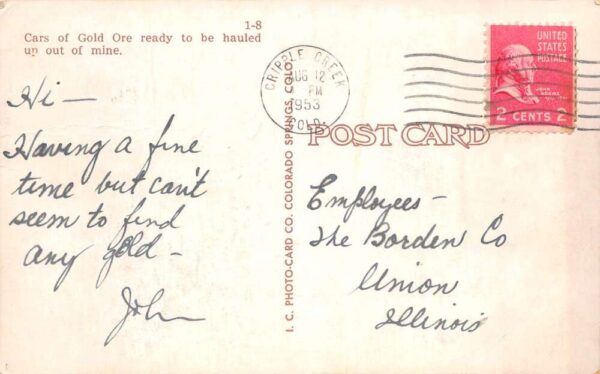 1-8
Cars of Gold Ore ready to be hauled
up out of mine.
CRIPPLE CREEK
AUG 12
PM
1953
COLO.
UNITED
STATES
POSTAGE
JOHN ADAMS
2 CENTS 2
POST CARD
I. C. PHOTO-CARD CO. COLORADO SPRINGS, COLO.
Hi —
Having a fine
time but can't
seem to find
any gold —
John
Employees —
The Borden Co
Union
Illinois